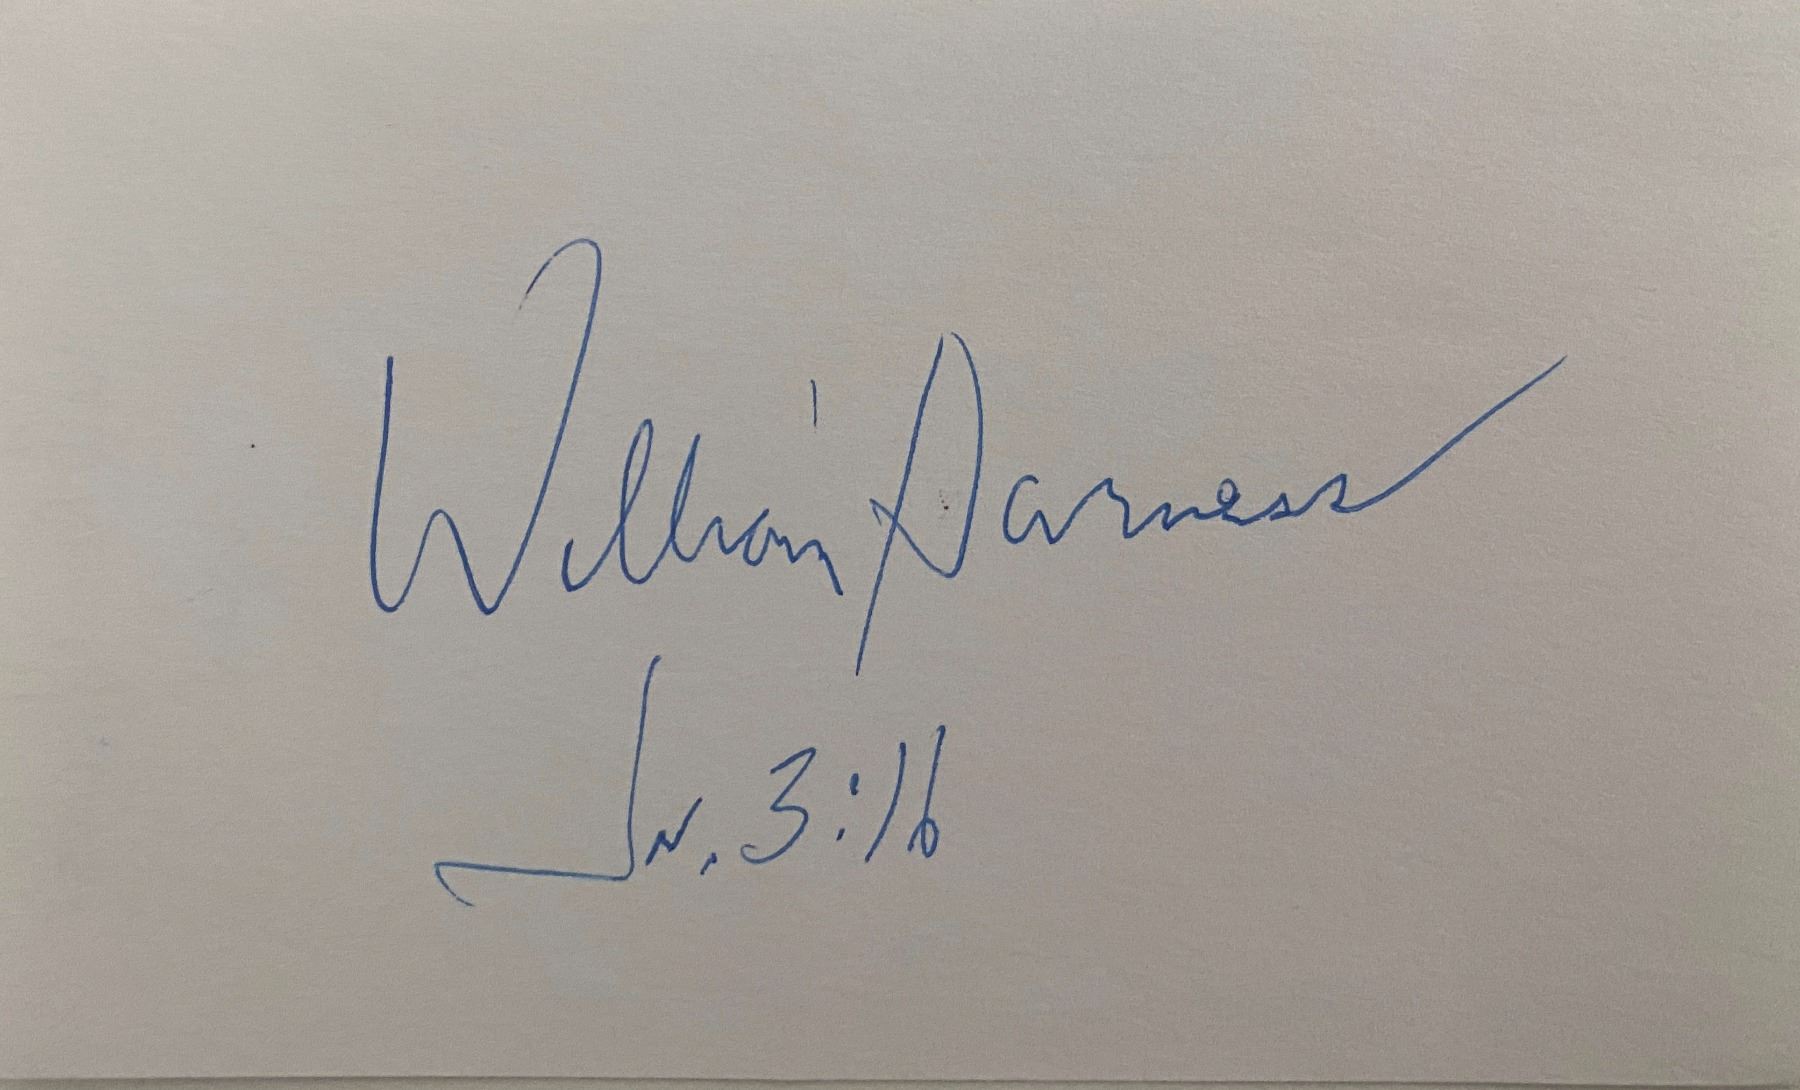 William Harness
Jn. 3:16